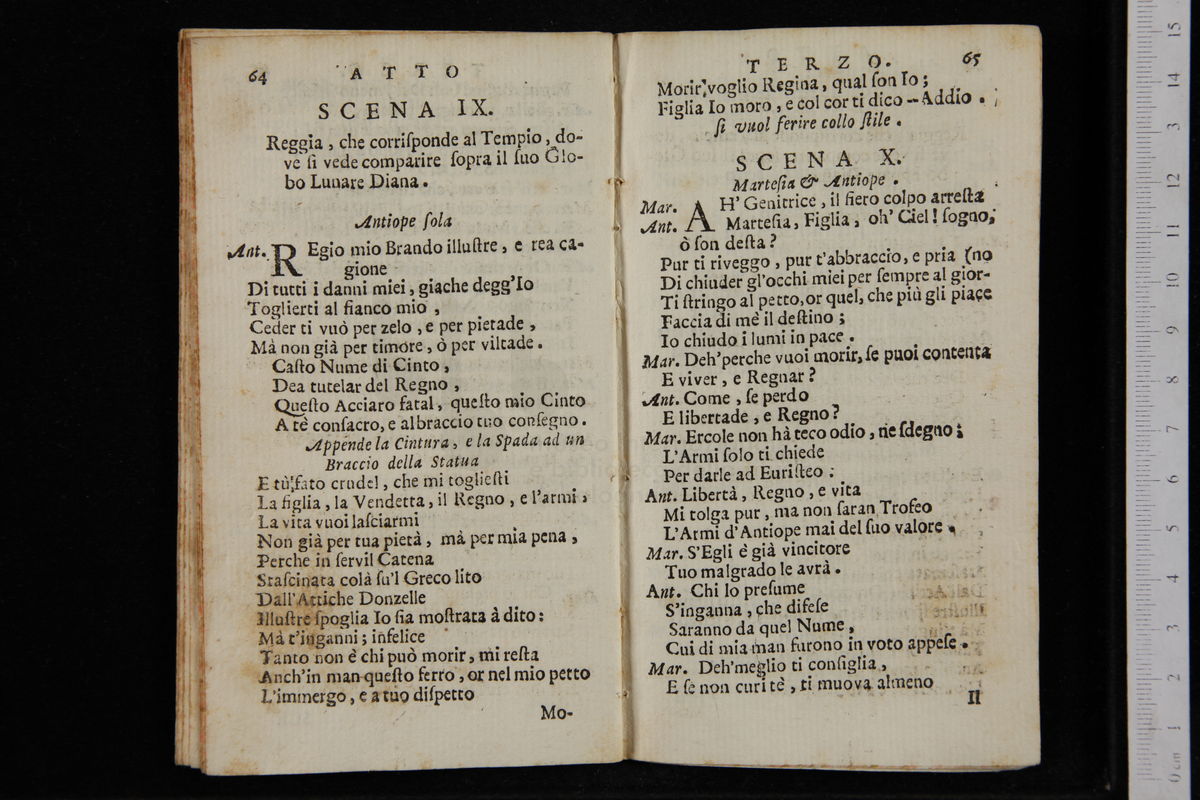 64 ATTO
SCENA IX.
Reggia, che corriſponde al Tempio, do-
ve ſi vede comparire ſopra il ſuo Glo-
bo Lunare Diana.
Antiope ſola
Ant. REgio mio Brando illuſtre, e rea ca-
gione
Di tutti i danni miei, giache degg'Io
Toglierti al fianco mio,
Ceder ti vuò per zelo, e per pietade,
Mà non già per timore, ò per viltade.
Caſto Nume di Cinto,
Dea tutelar del Regno,
Queſto Acciaro fatal, queſto mio Cinto
A tè conſacro, e al braccio tuo conſegno.
Appende la Cintura, e la Spada ad un
Braccio della Statua
E tù fato crudel, che mi toglieſti
La figlia, la Vendetta, il Regno, e l'armi,
La vita vuoi laſciarmi
Non già per tua pietà, mà per mia pena,
Perche in ſervil Catena
Straſcinata colà ſu'l Greco lito
Dall'Attiche Donzelle
Illuſtre ſpoglia Io ſia moſtrata à dito:
Mà t'inganni; infelice
Tanto non è chi può morir, mi reſta
Anch'in man queſto ferro, or nel mio petto
L'immergo, e a tuo diſpetto
Mo-
TERZO. 65
Morir voglio Regina, qual ſon Io;
Figlia Io moro, e col cor ti dico – Addio.
ſi vuol ferire collo ſtile.
SCENA X.
Marteſia & Antiope.
Mar. AH' Genitrice, il fiero colpo arreſta
Ant. Marteſia, Figlia, oh' Ciel! ſogno,
ò ſon deſta?
Pur ti riveggo, pur t'abbraccio, e pria (no
Di chiuder gl'occhi miei per ſempre al gior-
Ti ſtringo al petto, or quel, che più gli piace
Faccia di mè il deſtino;
Io chiudo i lumi in pace.
Mar. Deh' perche vuoi morir, ſe puoi contenta
E viver, e Regnar?
Ant. Come, ſe perdo
E libertade, e Regno?
Mar. Ercole non hà teco odio, ne ſdegno;
L'Armi ſolo ti chiede
Per darle ad Euriſteo:
Ant. Libertà, Regno, e vita
Mi tolga pur, ma non ſaran Trofeo
L'Armi d'Antiope mai del ſuo valore.
Mar. S'Egli è già vincitore
Tuo malgrado le avrà.
Ant. Chi lo preſume
S'inganna, che difeſe
Saranno da quel Nume,
Cui di mia man furono in voto appeſe.
Mar. Deh' meglio ti conſiglia,
E ſe non curi tè, ti muova almeno
Il
0 cm 1 2 3 4 5 6 7 8 9 10 11 12 13 14 15